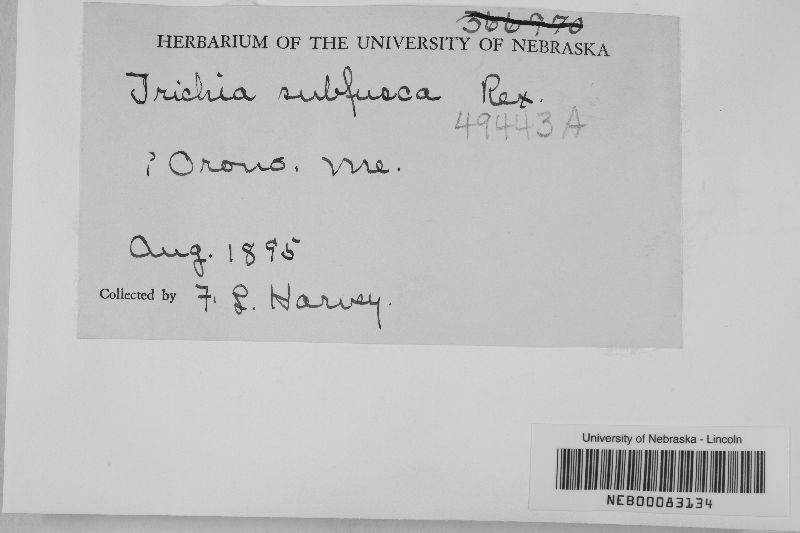 366970
HERBARIUM OF THE UNIVERSITY OF NEBRASKA
Trichia subfusca Rex.
49443 A
? Orono. Me.
Aug. 1895
Collected by F. L. Harvey.
University of Nebraska - Lincoln
NEB00083134